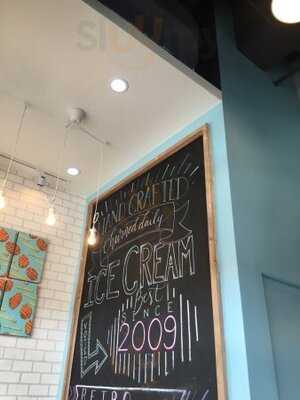 slurrp
HAND CRAFTED
Churned daily
ICE CREAM
Best
SINCE
2009
RETRO